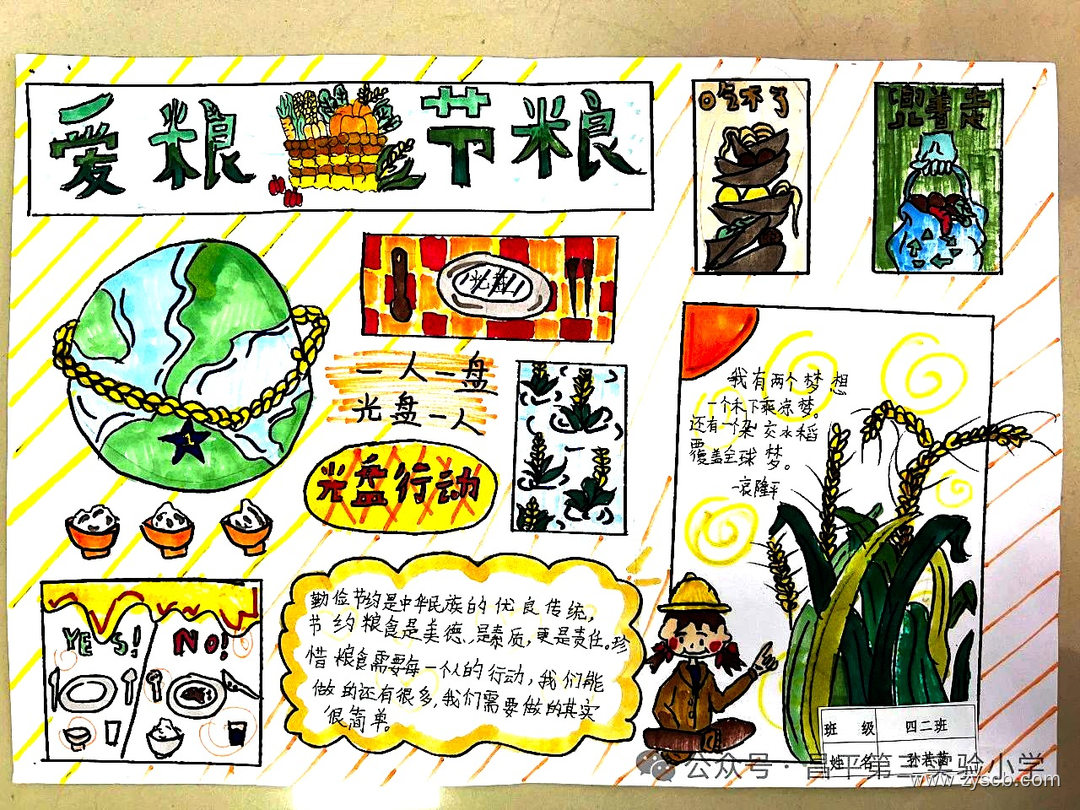 爱粮节粮
吃不了
兜着走
光盘
一人一盘
光盘一人
光盘行动
我有两个梦想
一个禾下乘凉梦。
还有一个杂交水稻
覆盖全球梦。
-袁隆平
YES!
NO!
勤俭节约是中华民族的优良传统,
节约粮食是美德、是素质,更是责任。珍
惜粮食需要每一个人的行动,我们能
做的还有很多,我们需要做的其实
很简单。
1
班 级 四二班
姓 名
公众号·昌平第三实验小学
www.zyscb.com